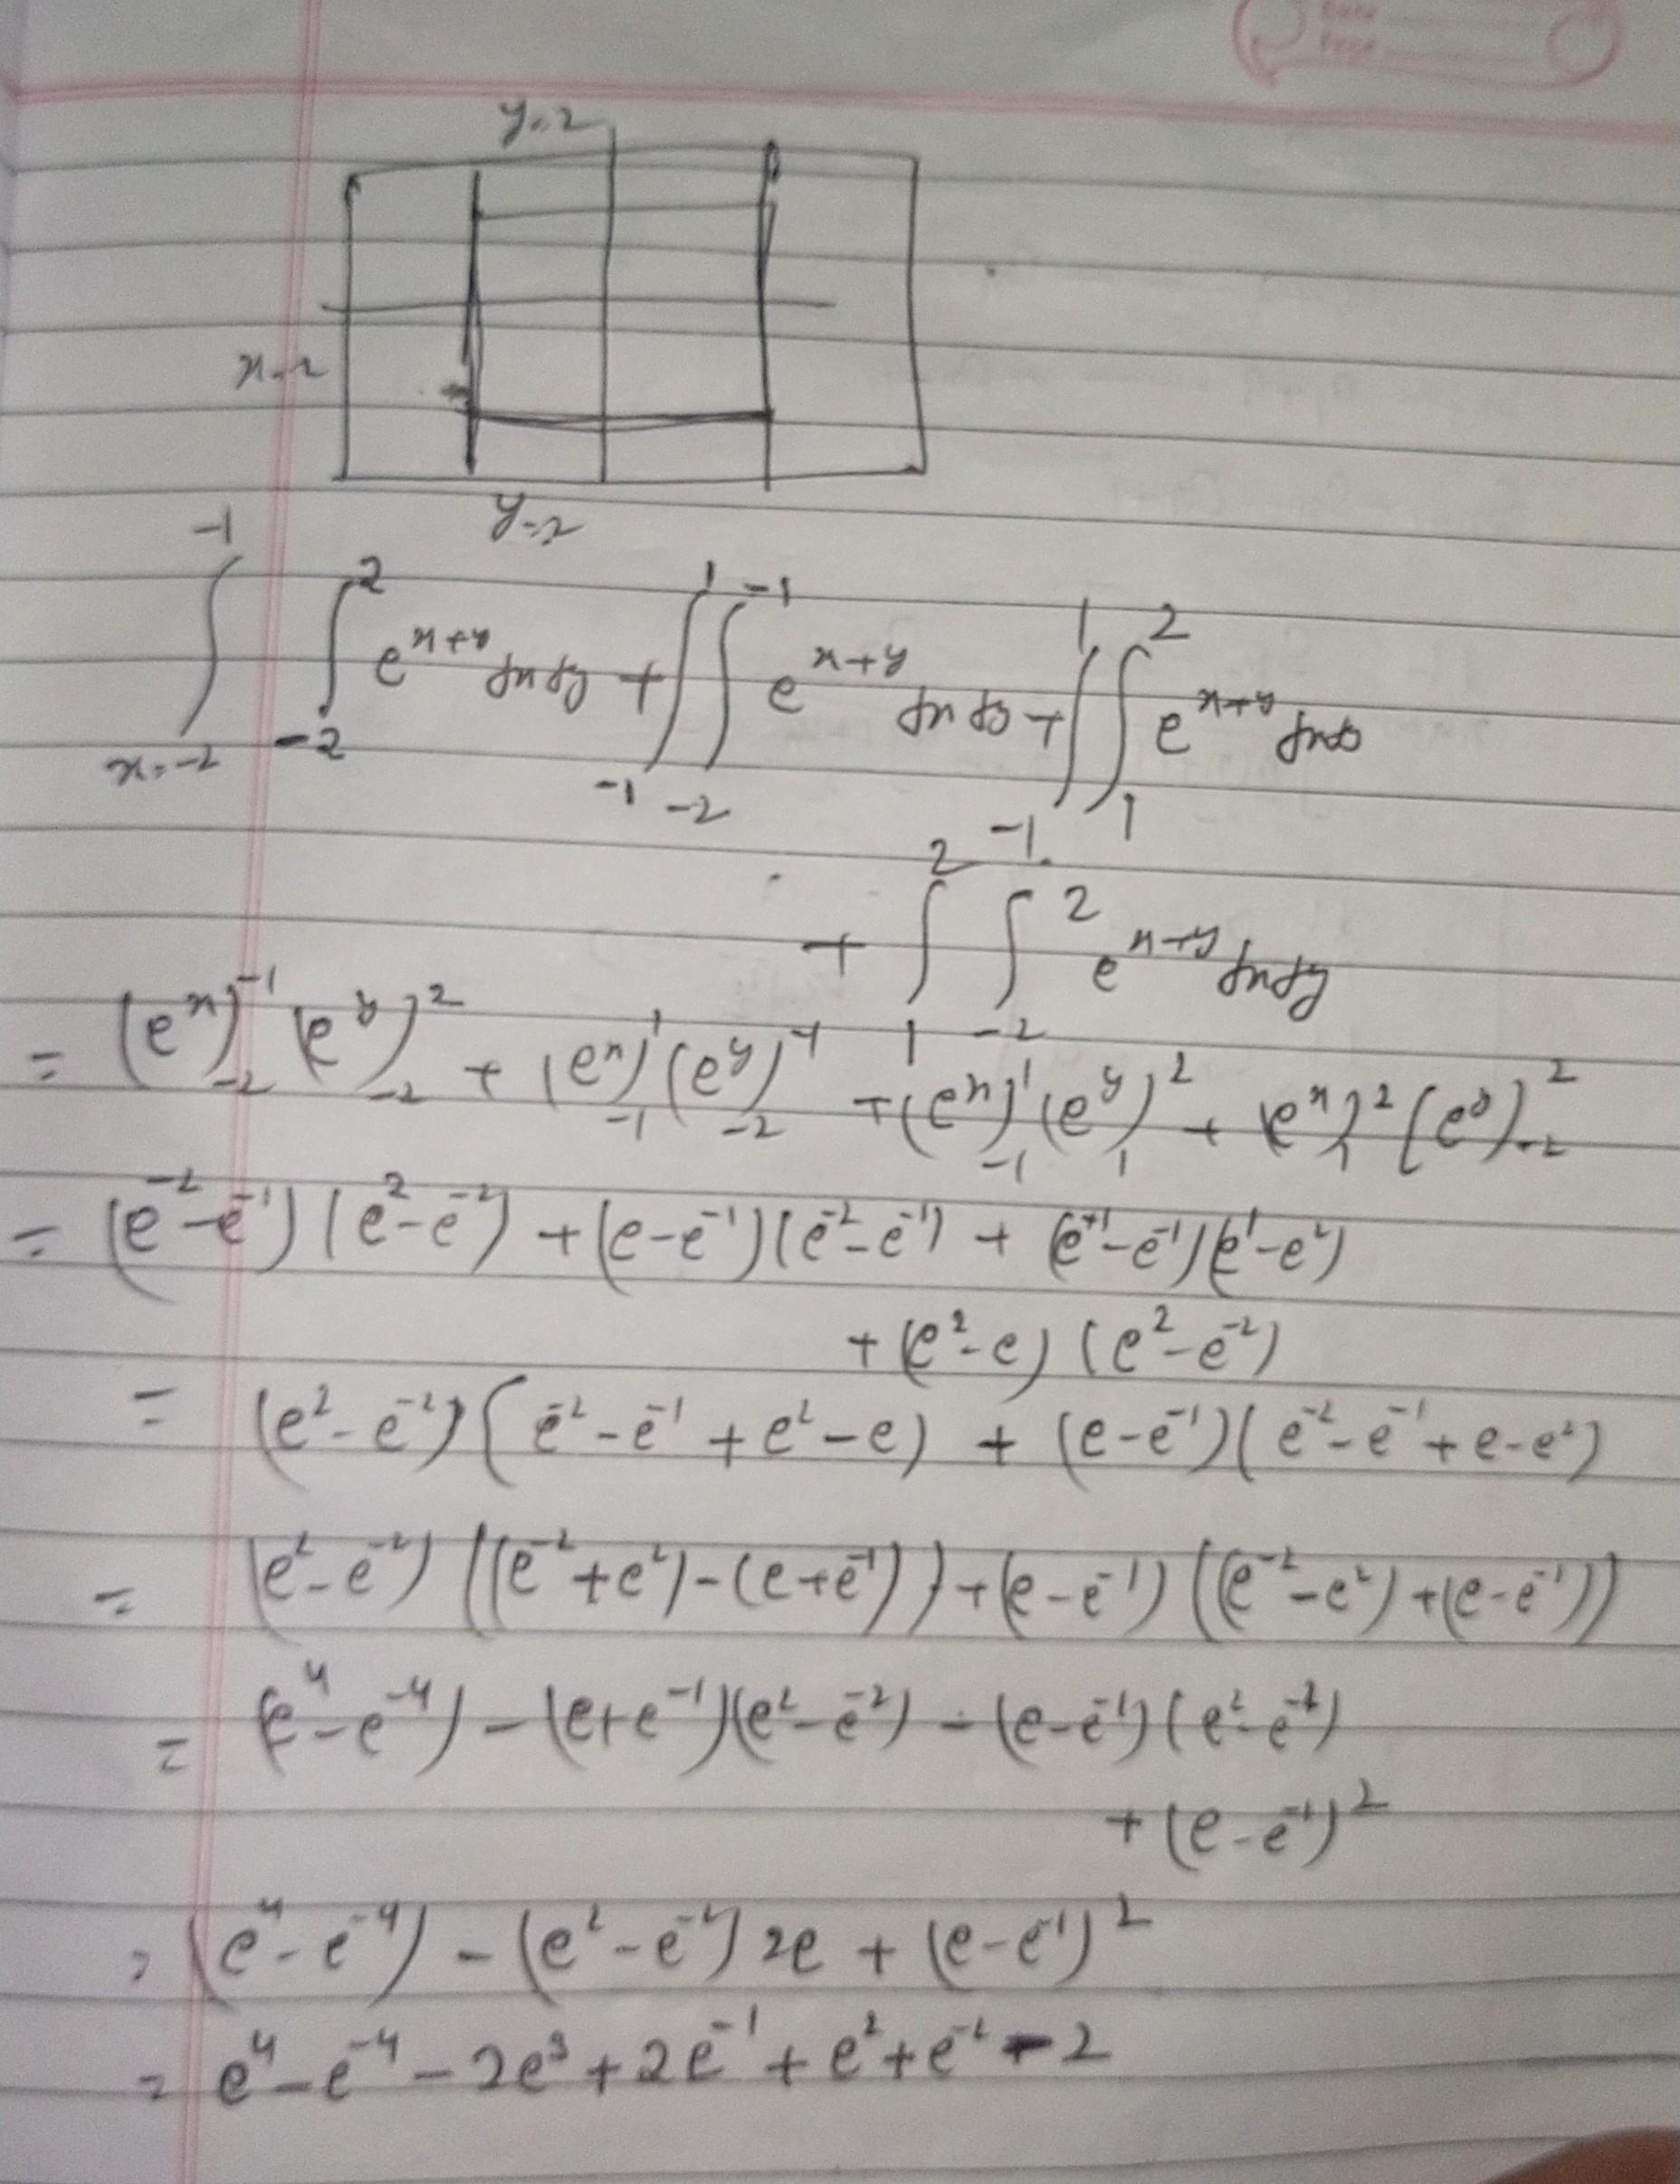 Date
Page
y=2
x-2
y-2
∫_{x=-2}^{-1} ∫_{-2}^{2} e^{x+y} dxdy + ∫_{-1}^{1} ∫_{-2}^{-1} e^{x+y} dx dy + ∫_{-1}^{1} ∫_{1}^{2} e^{x+y} dxdy
+ ∫_{1}^{2} ∫_{-2}^{2} e^{x+y} dxdy
= (e^x)_{-2}^{-1} (e^y)_{-2}^{2} + (e^x)_{-1}^{1} (e^y)_{-2}^{-1} + (e^x)_{-1}^{1} (e^y)_{1}^{2} + (e^x)_{1}^{2} (e^y)_{-2}^{2}
= (e^{-2} - e^{-1}) (e^2 - e^{-2}) + (e - e^{-1}) (e^{-2} - e^{-1}) + (e^{+1} - e^{-1}) (e^1 - e^2)
+ (e^2 - e) (e^2 - e^{-2})
= (e^2 - e^{-2}) (e^{-2} - e^{-1} + e^2 - e) + (e - e^{-1}) (e^{-2} - e^{-1} + e - e^2)
= (e^2 - e^{-2}) ((e^{-2} + e^2) - (e + e^{-1})) + (e - e^{-1}) ((e^{-2} - e^2) + (e - e^{-1}))
= (e^4 - e^{-4}) - (e + e^{-1}) (e^2 - e^{-2}) - (e - e^{-1}) (e^2 - e^{-2})
+ (e - e^{-1})^2
= (e^4 - e^{-4}) - (e^2 - e^{-2}) 2e + (e - e^{-1})^2
= e^4 - e^{-4} - 2e^3 + 2e^{-1} + e^2 + e^{-2} - 2